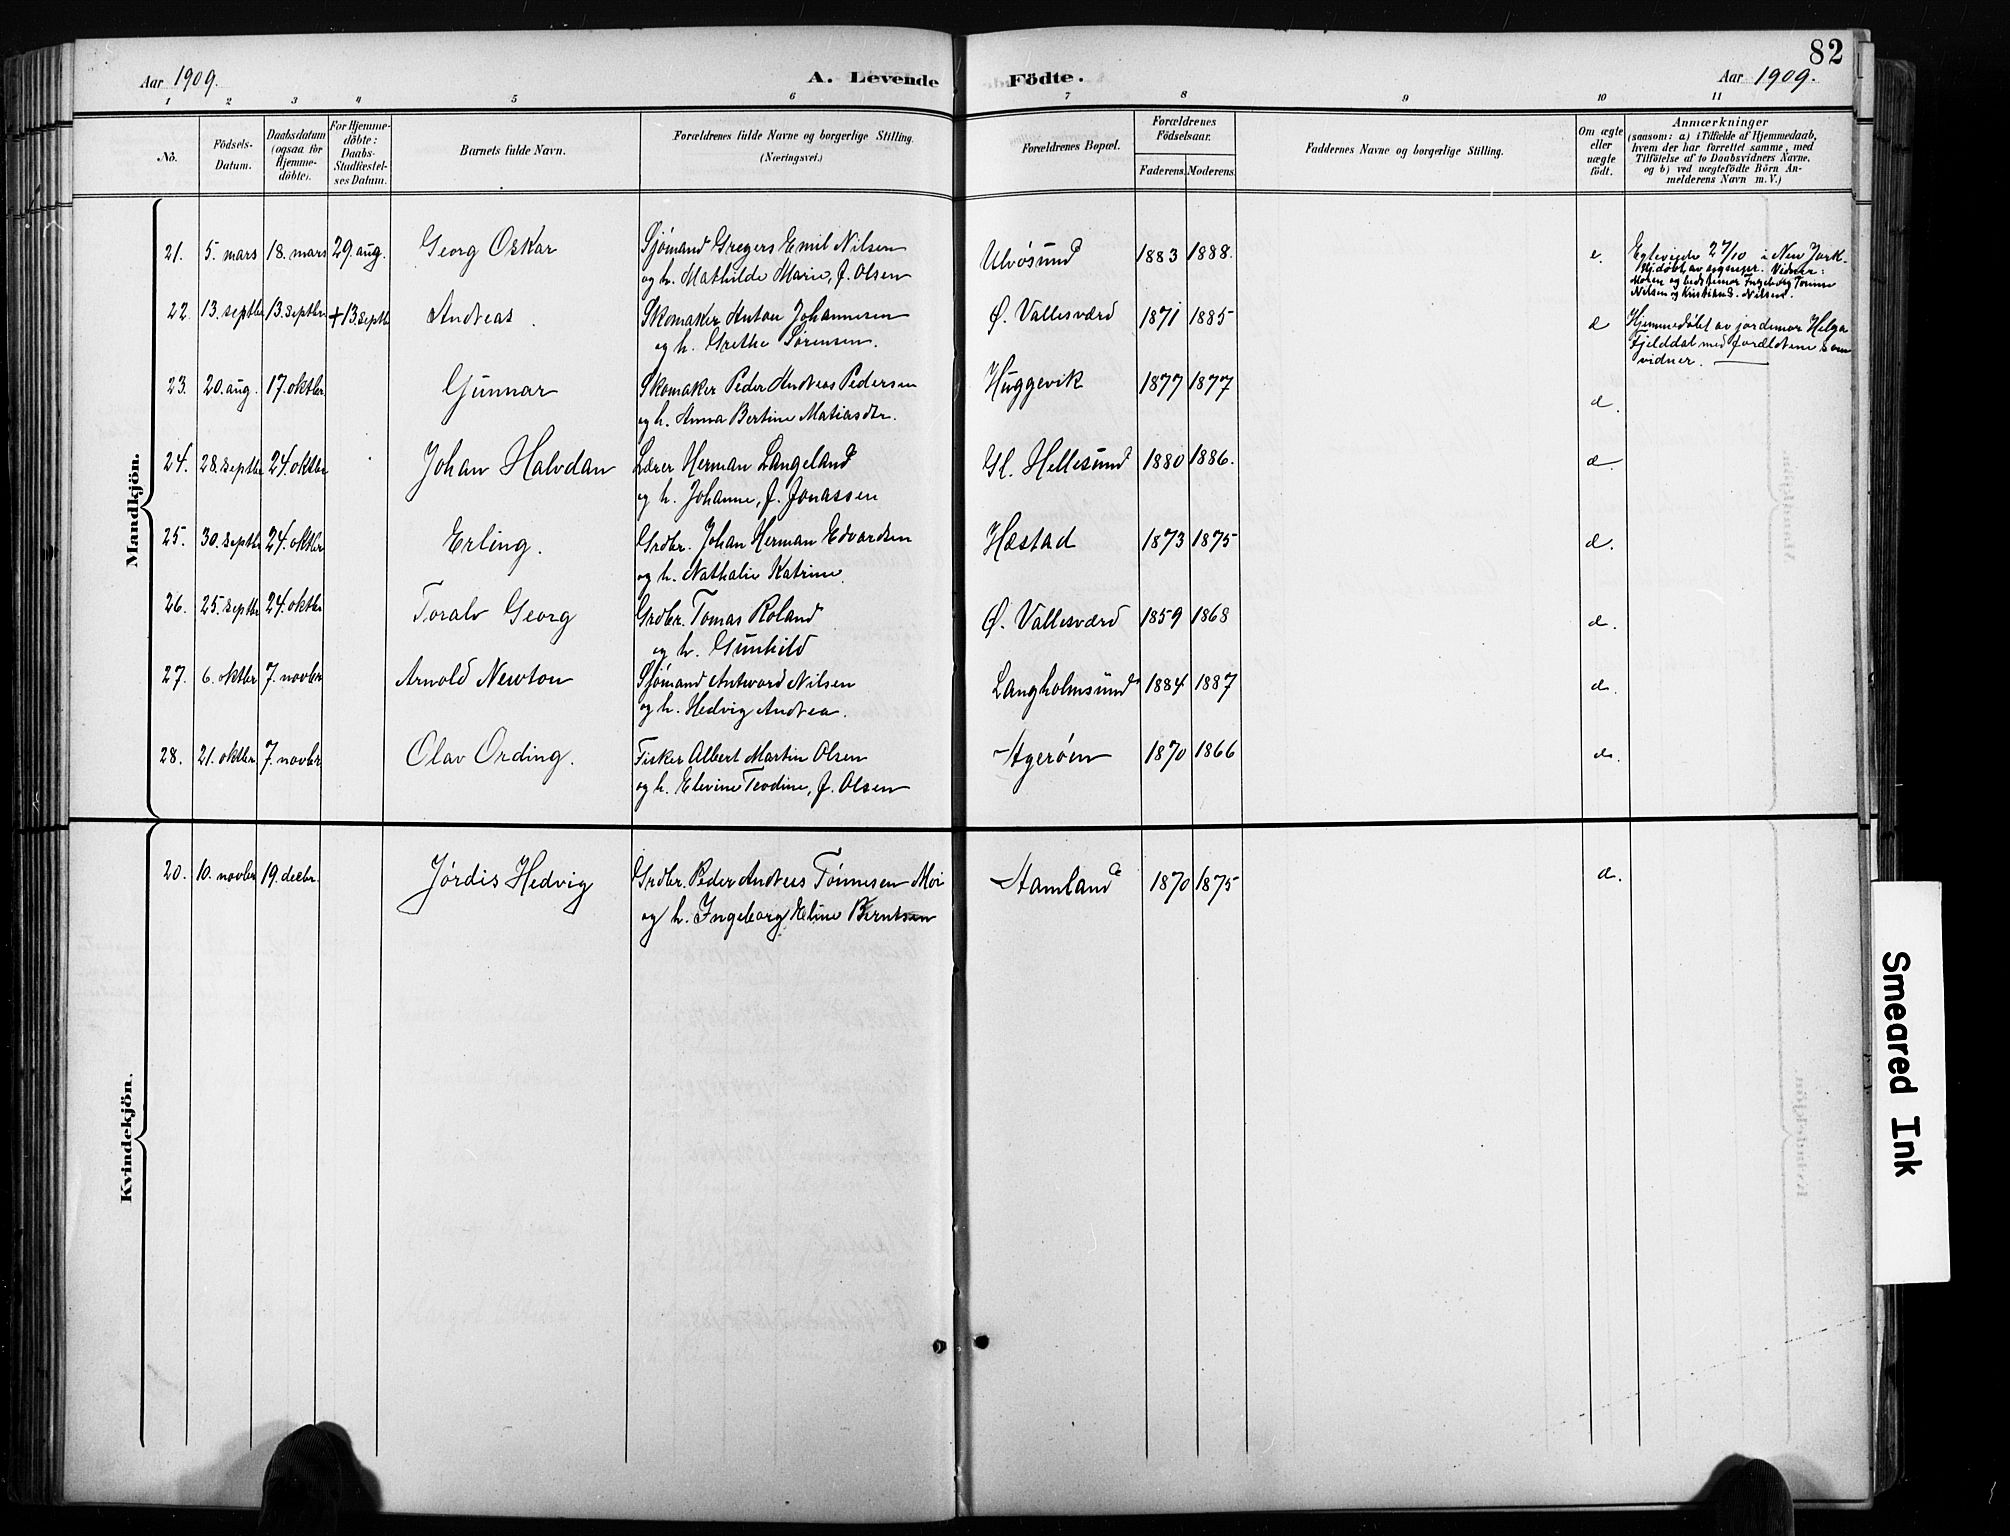 82
Aar 1909.
A. Levende Födte.
Aar 1909.
1 2 3 4 5 6 7 8 9 10 11
No.
Födsels-Datum.
Daabsdatum (ogsaa för Hjemme-döbte).
For Hjemme-döbte: Daabs-Stadfæstel-ses Datum.
Barnets fulde Navn.
Forældrenes fulde Navne og borgerlige Stilling. (Næringsvei.)
Forældrenes Bopæl.
Forældrenes Födselsaar.
Faderens. Moderens.
Faddernes Navne og borgerlige Stilling.
Om ægte eller uægte födt.
Anmærkninger
(saasom: a) i Tilfælde af Hjemmedaab, hvem der har forrettet samme, med Tilföielse af to Daabsvidners Navne, og b) ved uægtefödte Börn An-melderens Navn m. V.)
Mandkjön.
21. 5. mars 18. mars 29. aug. Georg Oskar Sjømand Gregers Emil Nilsen Ulvøsund 1883 1888. e.
og h. Mathilde Marie, f. Olsen
Egtevigde 27/10 i New Jork.
Vidner:
Moren og bedstemor Ingeborg Tomine
Nilsen og Kristiane Nilsen.
22. 13. septbr 13. septbr +13. septbr Andreas. Skomaker Anton Johannesen Ø. Vallesværd 1871 1885 d
og h. Grethe Sørensen.
Hjemmedøbt av jordemor Helga
Fjelddal med forældrene som
vidner.
23. 20. aug. 17. oktbr Gunnar Skomaker Peder Andreas Pedersen Huggevik 1877 1877 d.
og h. Anna Bertine Matiasdtr.
24. 28. septbr 24. oktbr Johan Halvdan Lærer Herman Langeland Gl. Hellesund 1880 1886. d.
og h. Johanne, f. Jonassen
25. 30. septbr 24. oktbr Erling. Grdbr. Johan Herman Edvardsen Hæstad 1873 1875 d.
og h. Nathalie Katrine.
26. 25. septbr 24. oktbr Toralv Georg Grdbr. Tomas Roland Ø. Vallesværd 1859 1868 d.
og h. Gunhild
27. 6. oktbr 7. novbr Arnold Newton Sjømand Antward Nilsen Langholmsund 1884 1887 d.
og h. Hedvig Andrea.
28. 21. oktbr 7. novbr Olav Ording. Fisker Albert Martin Olsen Agerøen 1870 1866 d.
og h. Elevine Teodine, f. Olsen
Kvindekjön.
20. 10. novbr 19. decbr. Jørdis Hedvig Grdbr. Peder Andreas Tønnesen Moi Hamland 1870 1875 d.
og h. Ingeborg Eline Berntsen
Smeared Ink